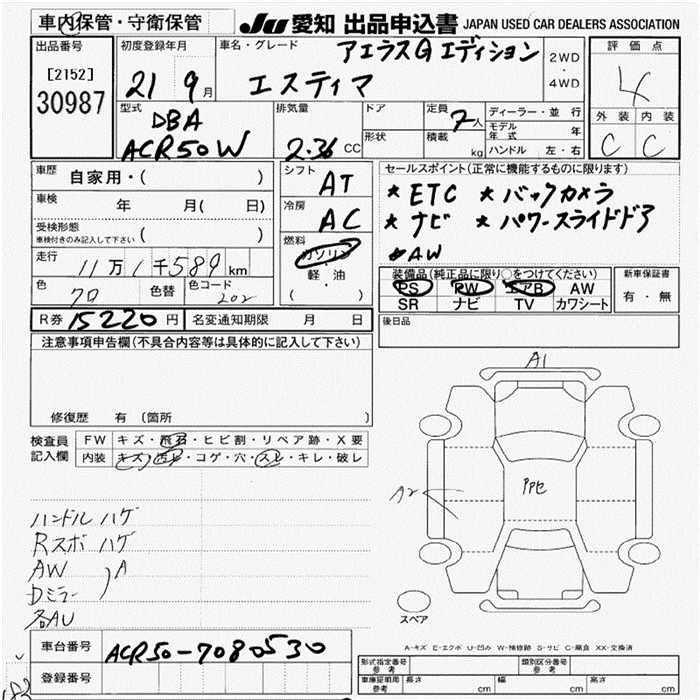 車内保管・守衛保管
JU 愛知 出品申込書 JAPAN USED CAR DEALERS ASSOCIATION
出品番号
[2152]
30987
初度登録年月
21 9月
車名・グレード
アエラスG エディション
エスティマ
2WD
・
4WD
評価点
4
外装 内装
C C
型式
DBA
ACR50W
排気量
2.36 CC
ドア
形状
定員 7人
積載 kg
ディーラー・並行
モデル年式 年
ハンドル 左・右
車歴
自家用・( )
車検 年 月( 日)
受検形態
車検付きのみ記入して下さい ( )
走行
11万1千589km
色 70
色替
色コード 202
シフト
AT
冷房
AC
燃料
ガソリン
・
軽・油
( )
セールスポイント(正常に機能するものに限ります)
* ETC * バックカメラ
* ナビ * パワースライドドア
* AW
装備品(純正品に限り○をつけてください)
PS PW エアB AW
SR ナビ TV カワシート
新車保証書
有・無
R券 15220円
名変通知期限 月 日
後日品
注意事項申告欄(不具合内容等は具体的に記入して下さい)
修復歴 有 (箇所 )
検査員記入欄
FW キズ・飛石・ヒビ割・リペア跡・X要
内装 キズ・汚レ・コゲ・穴・スレ・キレ・破レ
ハンドル ハゲ
Rスポ ハゲ
AW
Dミラー ) A
各AU
A1
A2
スペア
A-キズ E-エクボ U-凹み W-補修跡 S-サビ C-腐食 XX-交換済
車台番号
ACR50-7080530
登録番号
形式指定番号 参考
類別区分番号 参考
車庫証明用 参考
長さ cm
幅 cm
高さ cm